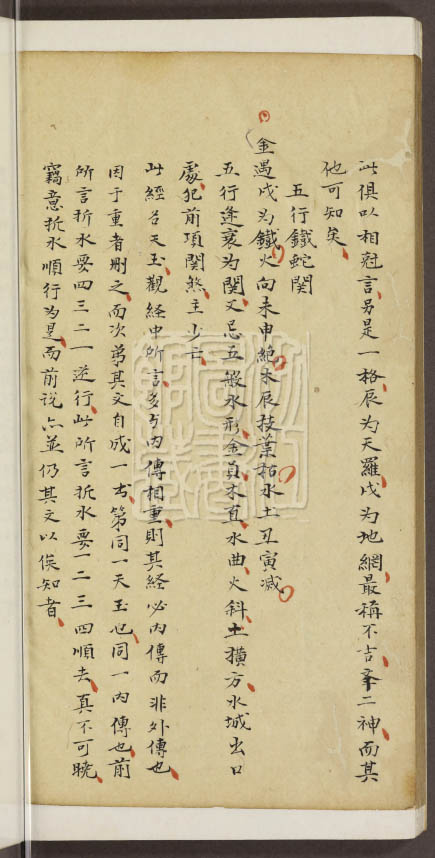 此俱以相剋言另是一格辰为天羅戌为地網最稱不吉夆二神而其
他可知矣
五行鐵蛇関
金遇戌为鐵火向未申絶木辰枝葉枯水土丑寅減
五行逢衰为関又忌五般水形金貟木直水曲火斜土橫方水城出口
處犯前項関煞主少亡
此経名天玉觀経中所言多与内傳相重則其経必内傳而非外傳也
因于重者刪之而次第其文自成一书第同一天玉也同一内傳也前
所言折水要四三二一逆行此所言折水要一二三四順去真不可曉
竊意折水順行为是而前說亦並仍其文以俟知者